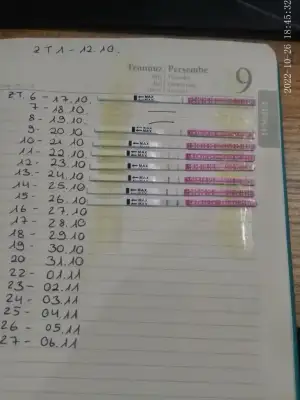 ZT 1 - 12.10.
Temmuz Perşembe
9
ZT. 6 - 17.10.
7 - 18.10
8 - 19.10
9 - 20.10
10 - 21.10
11 - 22.10
12 - 23.10
13 - 24.10
14 - 25.10
15 - 26.10
16 - 27.10
17 - 28.10
18 - 29.10
19 - 30.10
20 31.10
22 - 01.11
23 - 02.11
24 - 03.11
25 - 04.11
26 - 05.11
27 - 06.11
2022-10-26 18:45:32